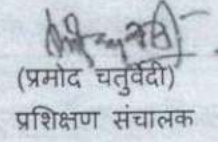 (प्रमोद चतुर्वेदी)
प्रशिक्षण संचालक